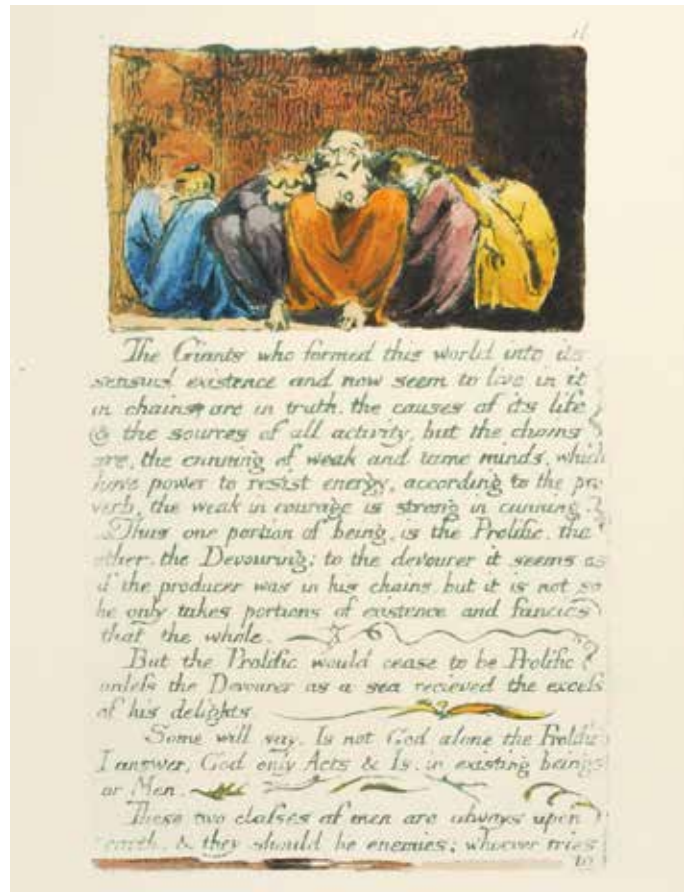 The Giants who formed this world into its
sensual existence and now seem to live in it
in chains are in truth. the causes of its life
& the sources of all activity, but the chains
are, the cunning of weak and tame minds, which
have power to resist energy, according to the pro
verb, the weak in courage is strong in cunning.
Thus one portion of being, is the Prolific. the
other. the Devouring; to the devourer it seems as
if the producer was in his chains, but it is not so
he only takes portions of existence and fancies
that the whole.
But the Prolific would cease to be Prolific
unless the Devourer as a sea recieved the excess
of his delights
Some will say, Is not God alone the Prolific
I answer, God only Acts & Is, in existing beings
or Men.
These two classes of men are always upon
earth, & they should be enemies; whoever tries
to